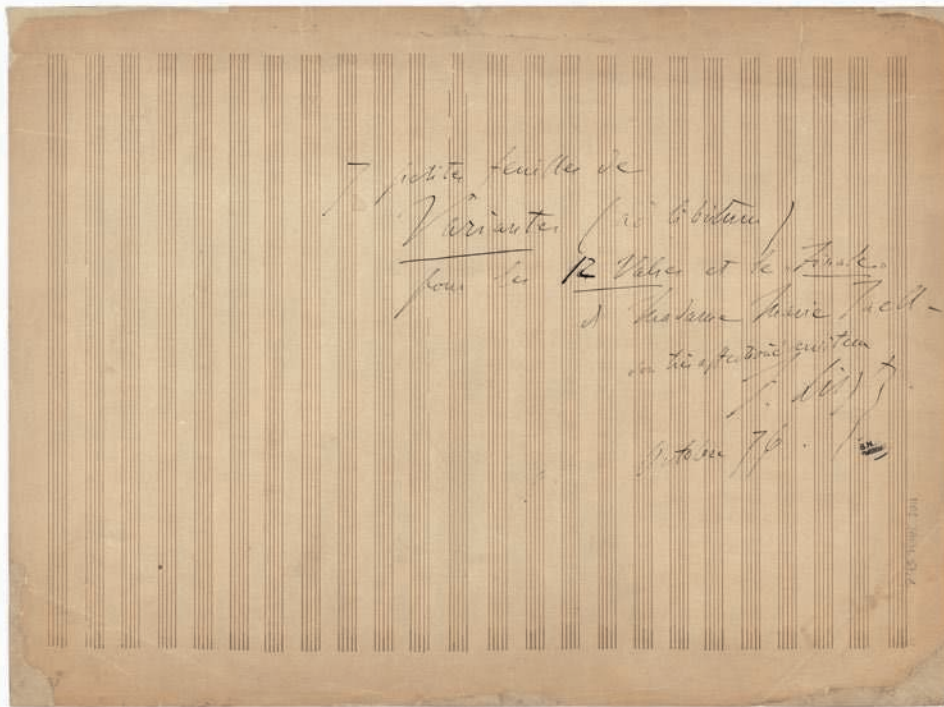 7 petites feuilles de
Variantes (ad libitum)
pour les 12 Valses et le Finale.
à Madame Marie Jaell -
son très affectionné serviteur
F. Liszt
Octobre 76.
B.N.